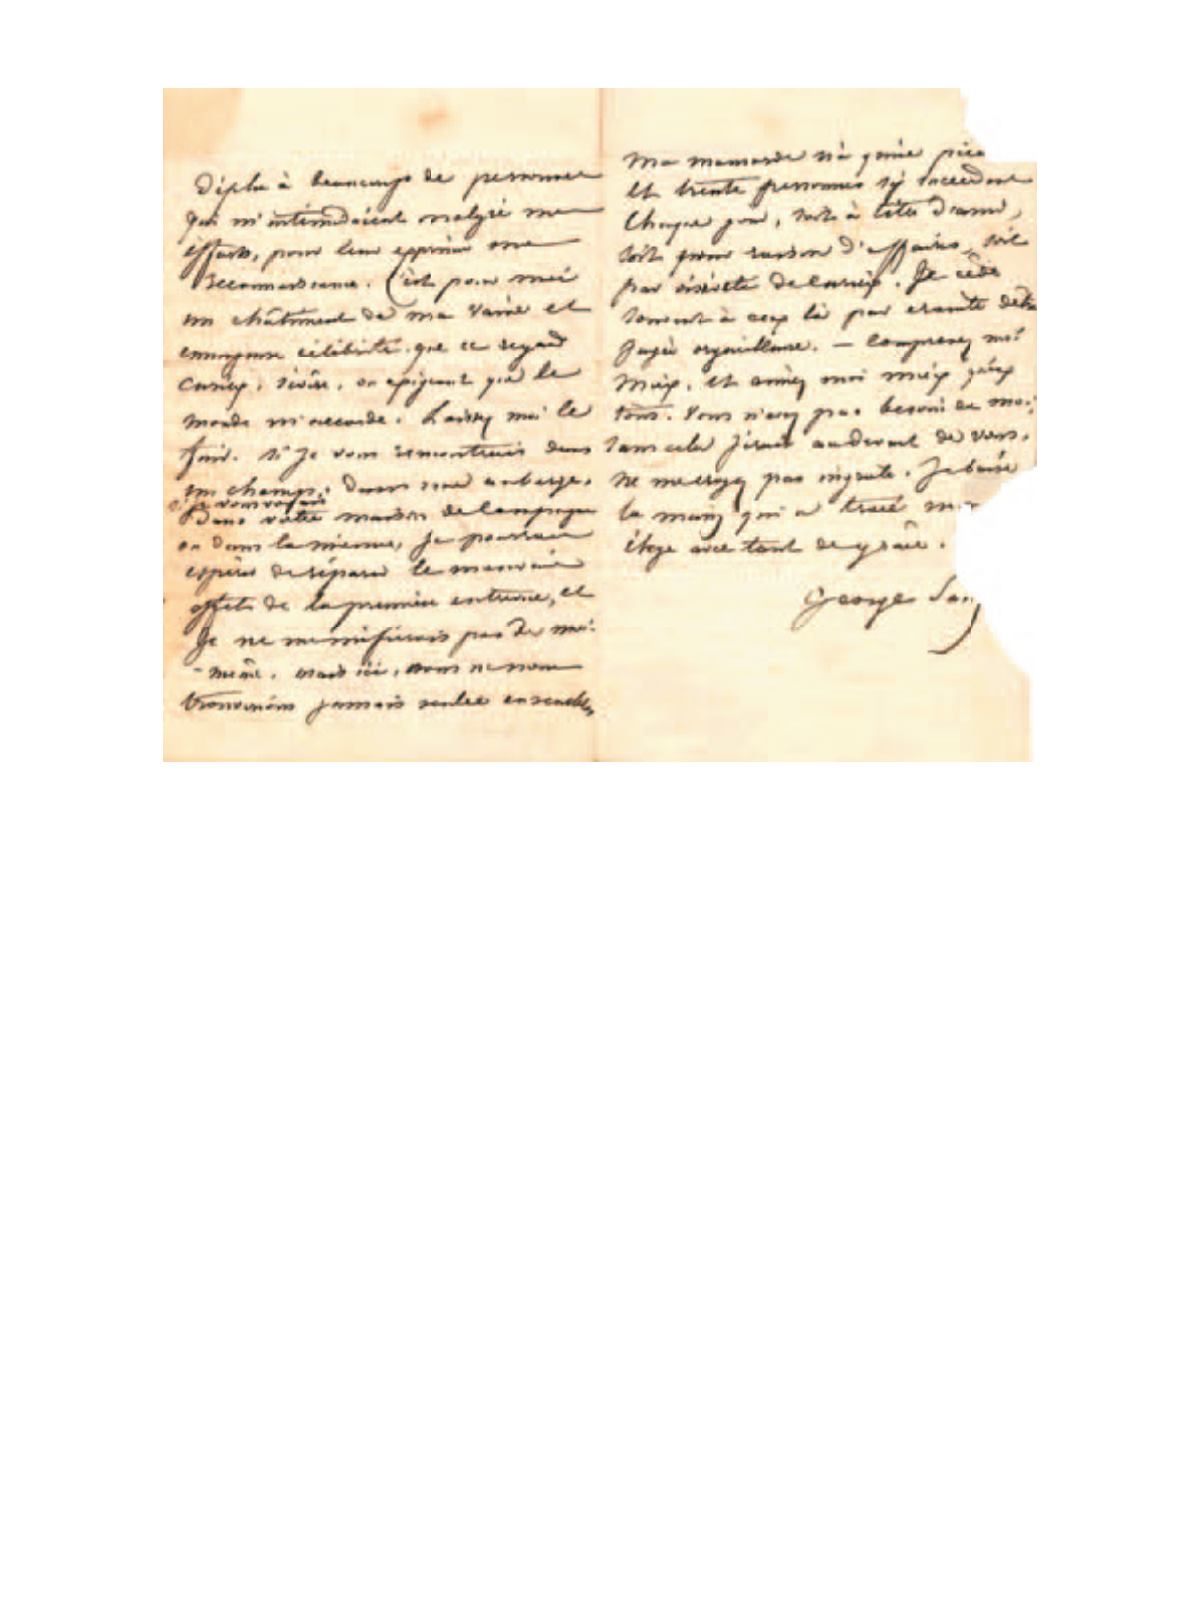 déplu à beaucoup de personnes
qui m'intimidaient malgré mes
efforts, pour leur exprimer ma
reconnaissance. C'est pour moi
un châtiment de ma vaine et
ennuyeuse célébrité que ce regard
curieux, sévère, ou exigeant que le
monde m'accorde. Laissez moi le
fuir. Si je vous rencontrais dans
un champ, dans une auberge,
si je vous voyais
dans votre maison de campagne
ou dans la mienne, je pourrais
espérer de réparer le mauvais
effet de la première entrevue, et
je ne me méfierais pas de moi
-même. mais ici, nous ne nous
trouverions jamais seules ensemble,
Ma mansarde n'a qu'une pièce
et trente personnes s'y succèdent
chaque jour, soit à titre d'amis,
soit pour raison d'affaires, soit
par oisiveté de curieux. Je cède
souvent à ceux là par crainte d'être
jugée orgueilleuse. — Comprenez moi
mieux, et aimez moi mieux qu'eux
tous. Vous n'avez pas besoin de moi,
sans cela j'irais au devant de vous.
Ne me croyez pas ingrate. Je baise
la main qui a tracé mon
éloge avec tant de grâce.
George San